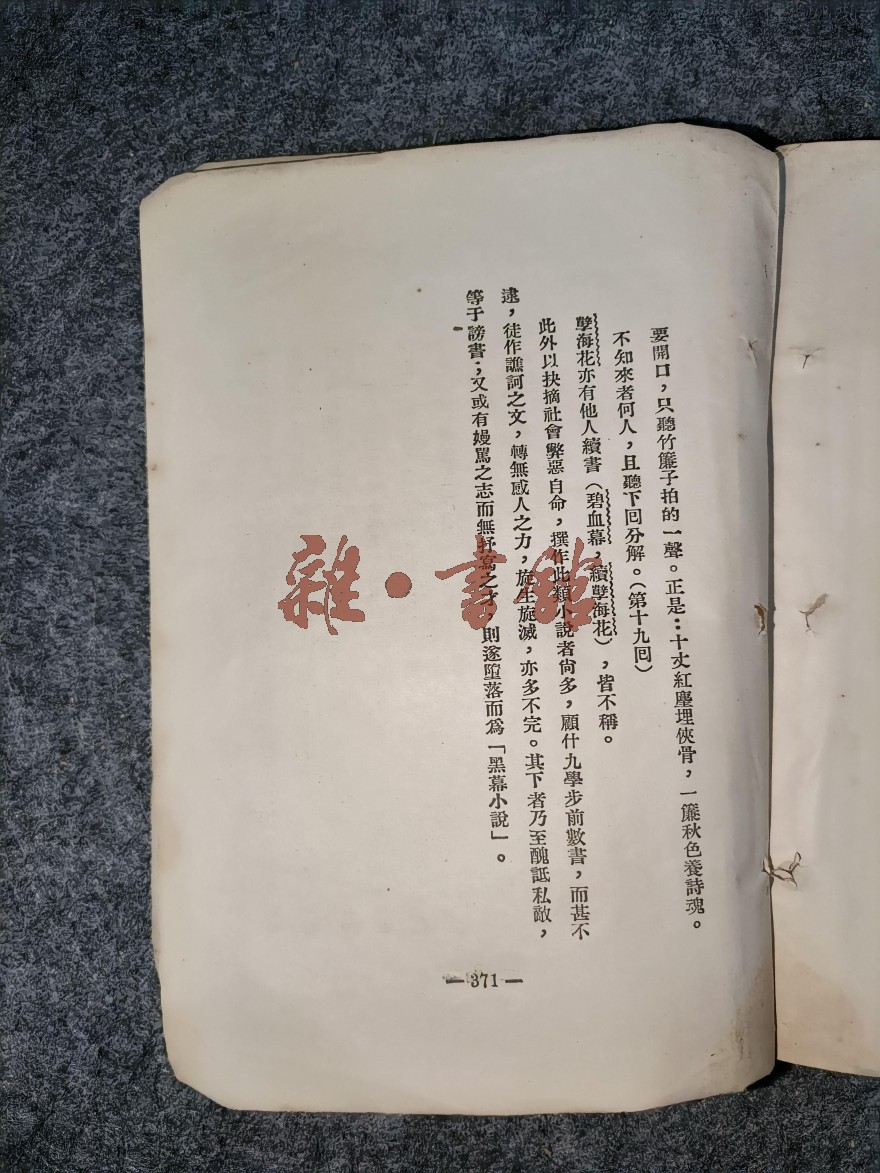 要開口，只聽竹簾子拍的一聲。正是：十丈紅塵埋俠骨，一簾秋色養詩魂。
不知來者何人，且聽下回分解。（第十九回）
孽海花亦有他人續書（碧血幕，續孽海花），皆不稱。
此外以抉摘社會弊惡自命，撰作此類小說者尙多，顧什九學步前數書，而甚不
逮，徒作譙訶之文，轉無感人之力，旋生旋滅，亦多不完。其下者乃至醜詆私敵，
等于謗書；又或有嫚罵之志而無抒寫之才，則遂墮落而爲「黑幕小說」。
—371—
雜·書館